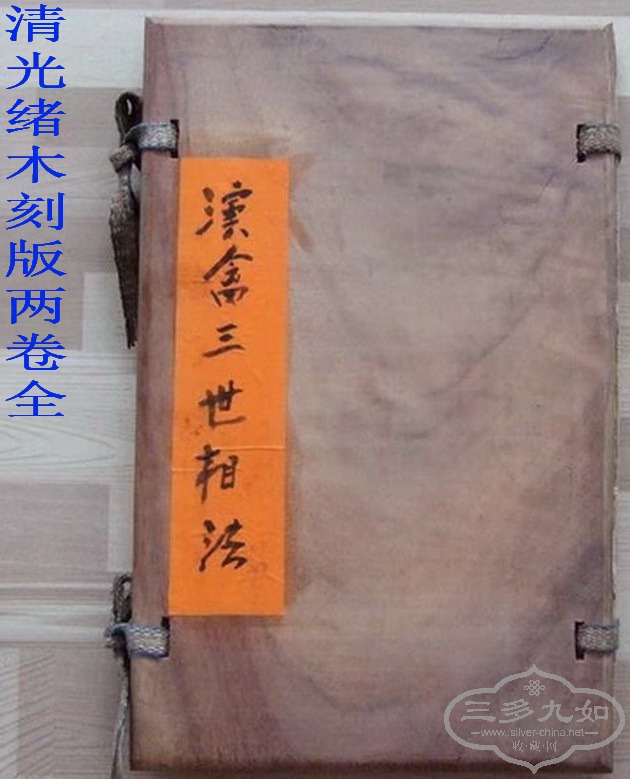 清光绪木刻版两卷全
演禽三世相法
三多九如
www.silver-china.net
收·藏·网